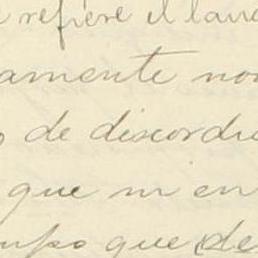 refiere el lau
amente no
de discordi
que ni en
upo que de